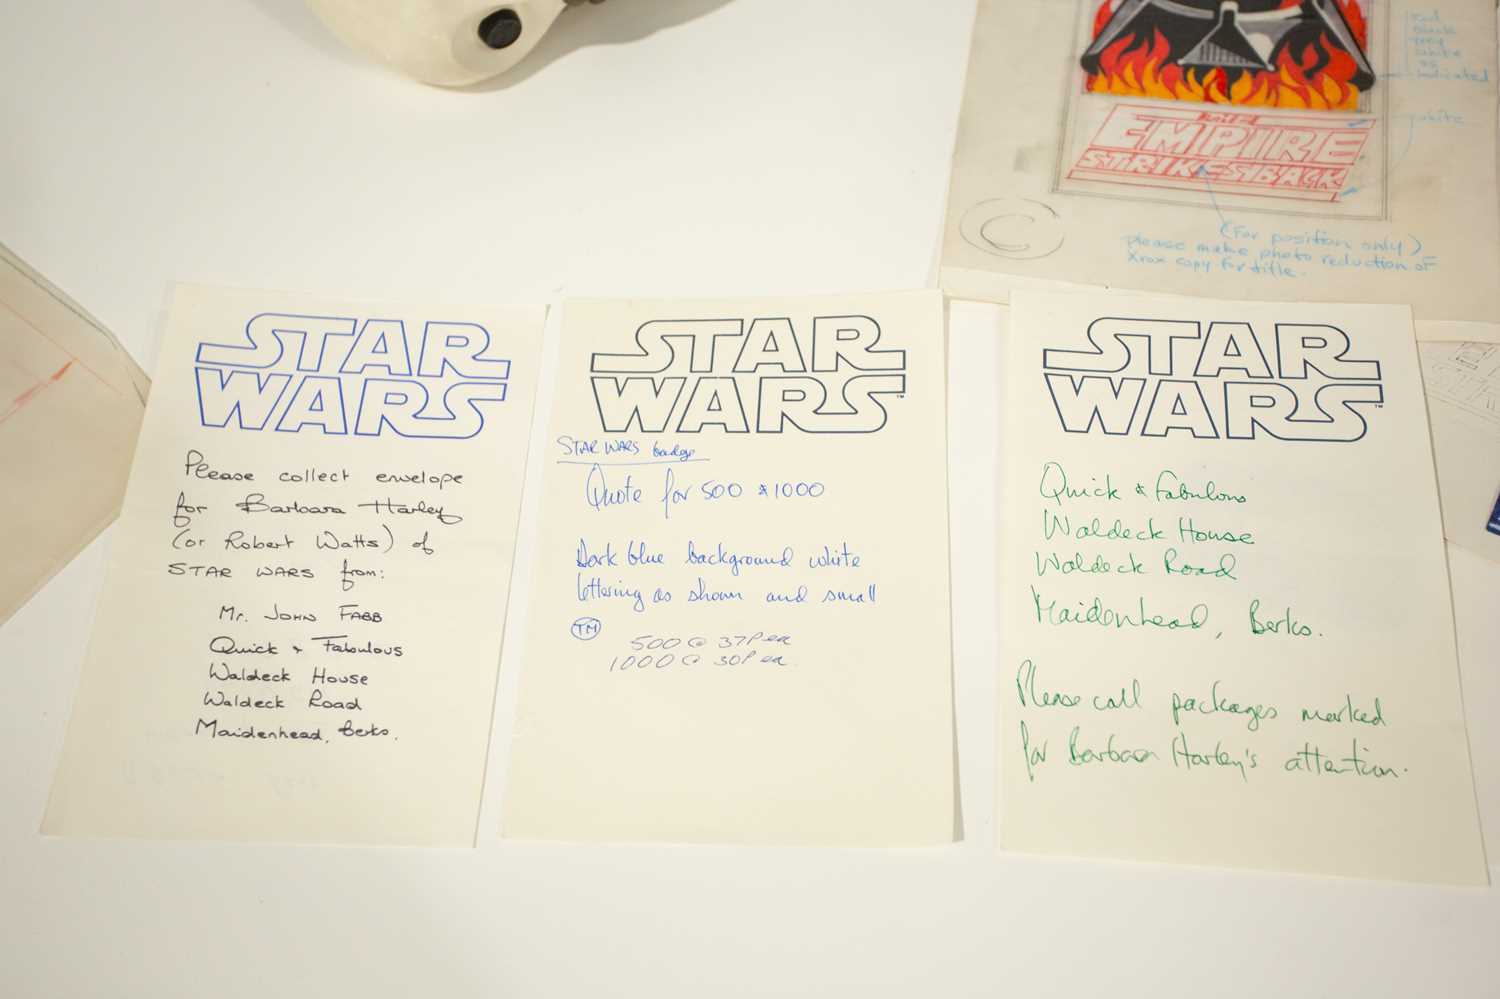 red
black
grey
white
as
indicated
white
THE
EMPIRE
STRIKES BACK
C
(For position only)
please make photo reduction of
Xrox copy for title.
STAR
WARS
Please collect envelope
for Barbara Harley
(or Robert Watts) of
STAR WARS from:
Mr. JOHN FABB
Quick & Fabulous
Waldeck House
Waldeck Road
Maidenhead, Berks.
STAR
WARS™
STAR WARS badge
Quote for 500 & 1000
Dark blue background white
lettering as shown and small
TM
500 @ 37P ea
1000 @ 30P ea.
STAR
WARS™
Quick & Fabulous
Waldeck House
Waldeck Road
Maidenhead, Berks.
Please call packages marked
for Barbara Harley's attention.